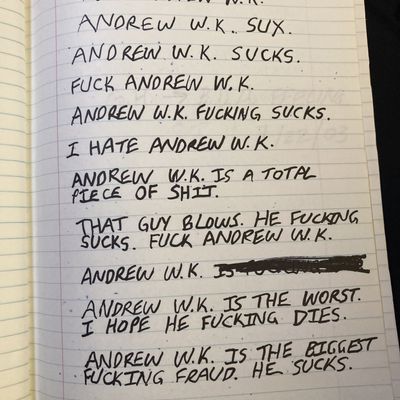 ANDREW W.K. SUX.
ANDREW W.K. SUCKS.
FUCK ANDREW W.K.
ANDREW W.K. FUCKING SUCKS.
I HATE ANDREW W.K.
ANDREW W.K. IS A TOTAL
PIECE OF SHIT.
THAT GUY BLOWS. HE FUCKING
SUCKS. FUCK ANDREW W.K.
ANDREW W.K.
ANDREW W.K. IS THE WORST.
I HOPE HE FUCKING DIES.
ANDREW W.K. IS THE BIGGEST
FUCKING FRAUD. HE SUCKS.